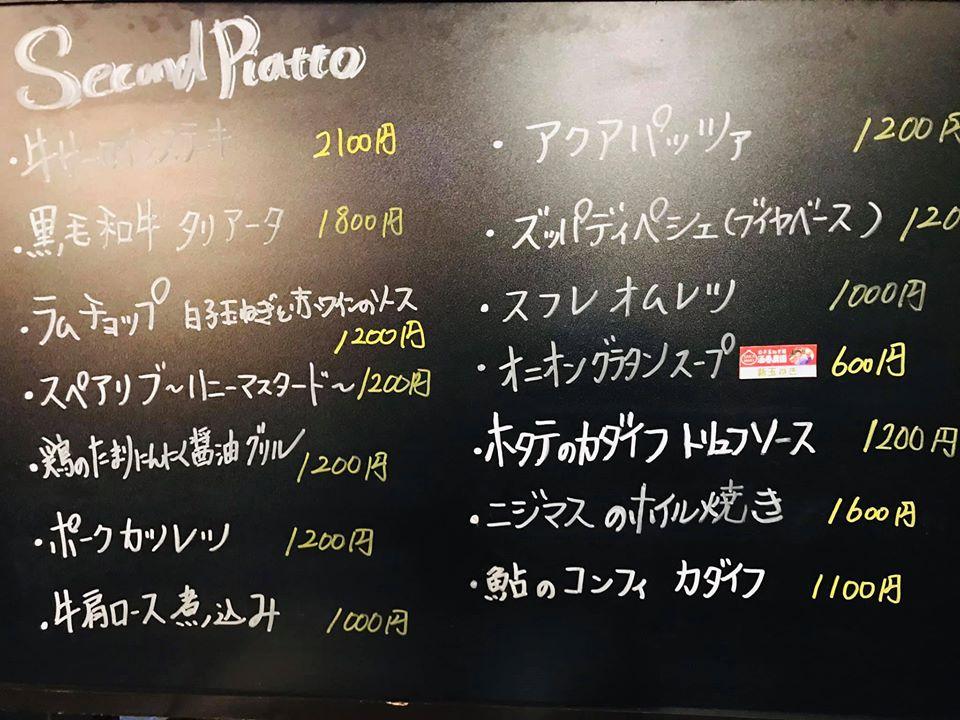 Second Piatto
・牛サーロインステーキ 2100円
・黒毛和牛 タリアータ 1800円
・ラムチョップ 白子玉ねぎと赤ワインのソース
1200円
・スペアリブ〜ハニーマスタード〜 1200円
・鶏のたまりにんにく醤油グリル 1200円
・ポークカツレツ 1200円
・牛肩ロース煮込み 1000円
・アクアパッツァ 1200円
・ズッパディペシェ(ブイヤベース) 120
・スフレオムレツ 1000円
・オニオングラタンスープ 600円
・ホタテのカダイフ トリュフソース 1200円
・ニジマスのホイル焼き 1600円
・鮎のコンフィ カダイフ 1100円